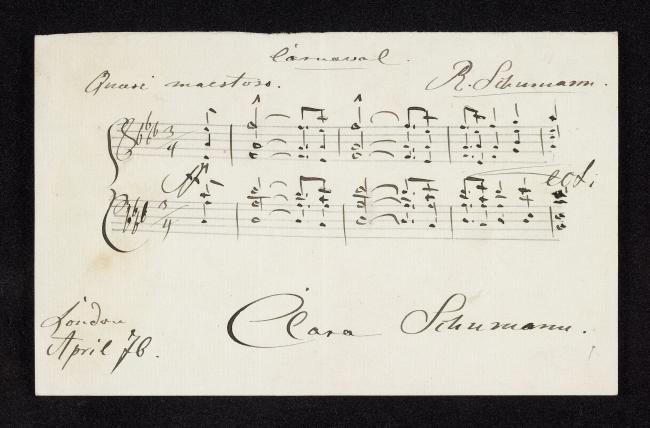 Carnaval.
Quasi maestoso. R. Schumann.
3 4
ff
etc.
3 4
London
April 76.
Clara Schumann.